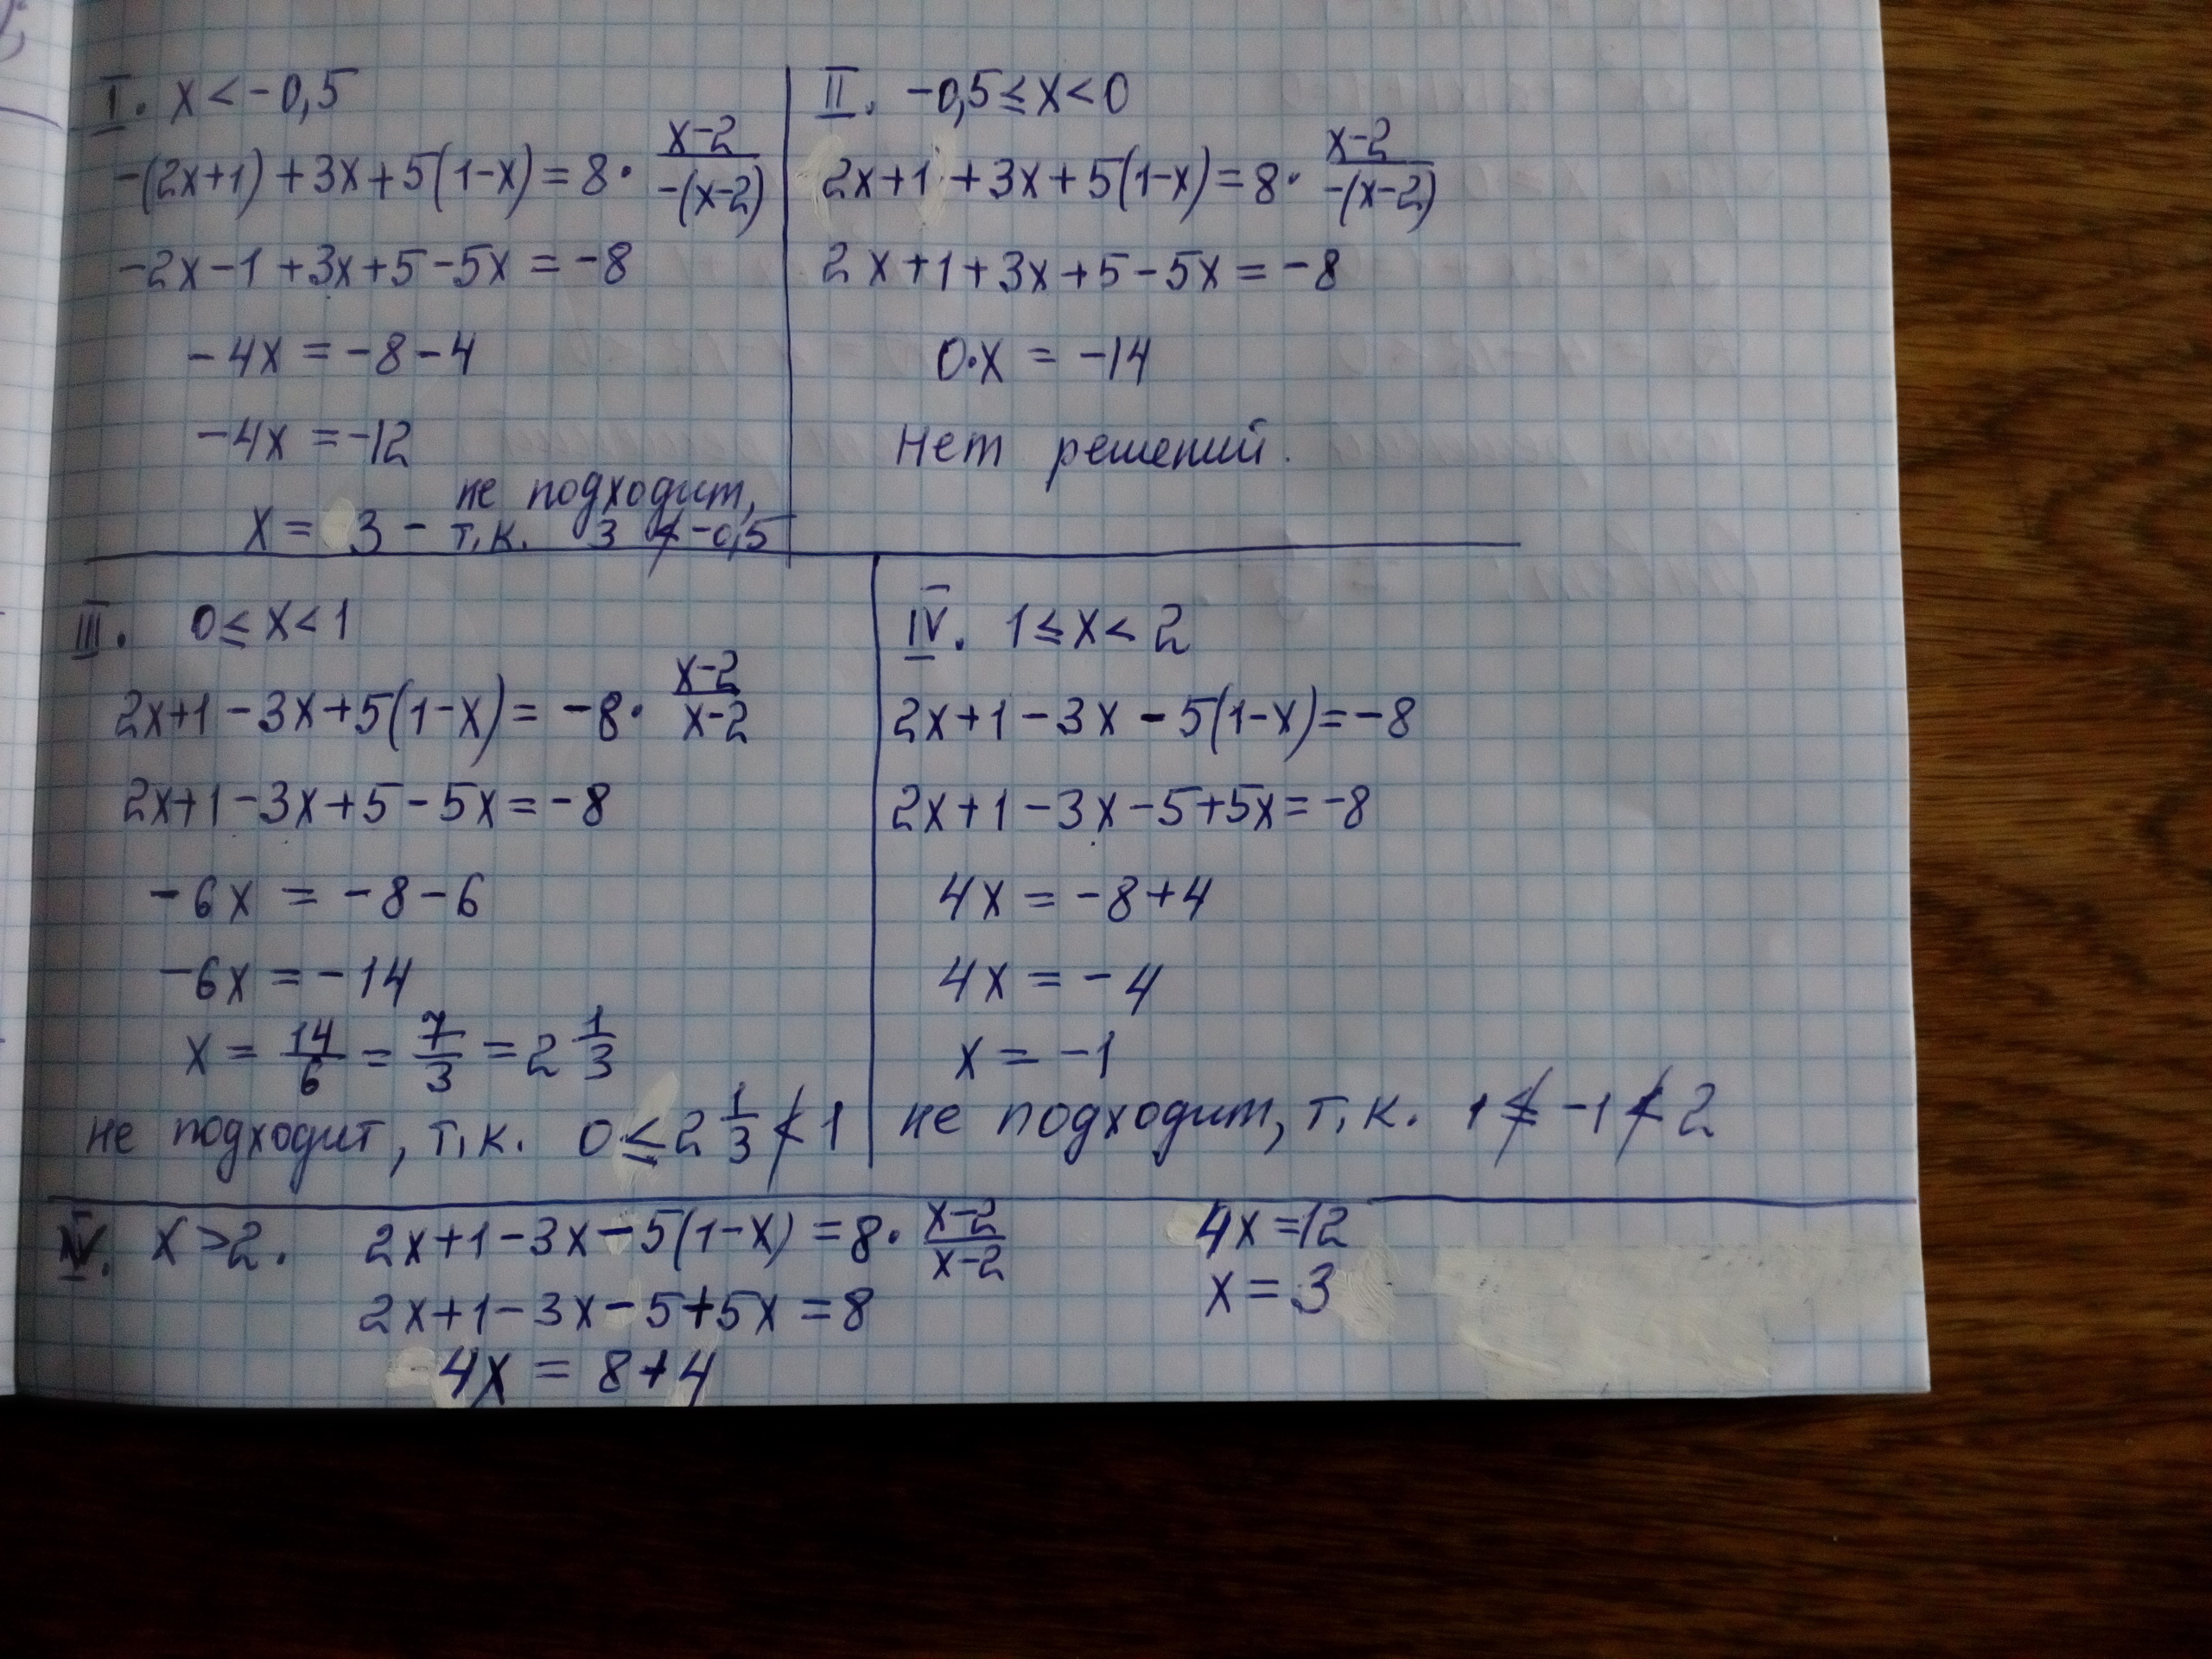 I. x < -0,5
-(2x+1)+3x+5(1-x)=8·\frac{x-2}{-(x-2)}
-2x-1+3x+5-5x=-8
-4x=-8-4
-4x=-12
x= 3 - не подходит,
т.к. 3 ≮ -0,5
II. -0,5≤x<0
2x+1 +3x+5(1-x)=8·\frac{x-2}{-(x-2)}
2x+1+3x+5-5x=-8
0·x = -14
нет решений.
III. 0≤x<1
2x+1-3x+5(1-x)= -8·\frac{x-2}{x-2}
2x+1-3x+5-5x=-8
-6x = -8-6
-6x=-14
x=\frac{14}{6}=\frac{7}{3}=2\frac{1}{3}
не подходит, т.к. 0≤2\frac{1}{3}≮1
IV. 1≤x<2
2x+1-3x-5(1-x)=-8
2x+1-3x-5+5x=-8
4x=-8+4
4x=-4
x=-1
не подходит, т.к. 1≰-1≮2
V. x>2. 2x+1-3x-5(1-x)=8·\frac{x-2}{x-2}
2x+1-3x-5+5x=8
4x=8+4
4x=12
x=3